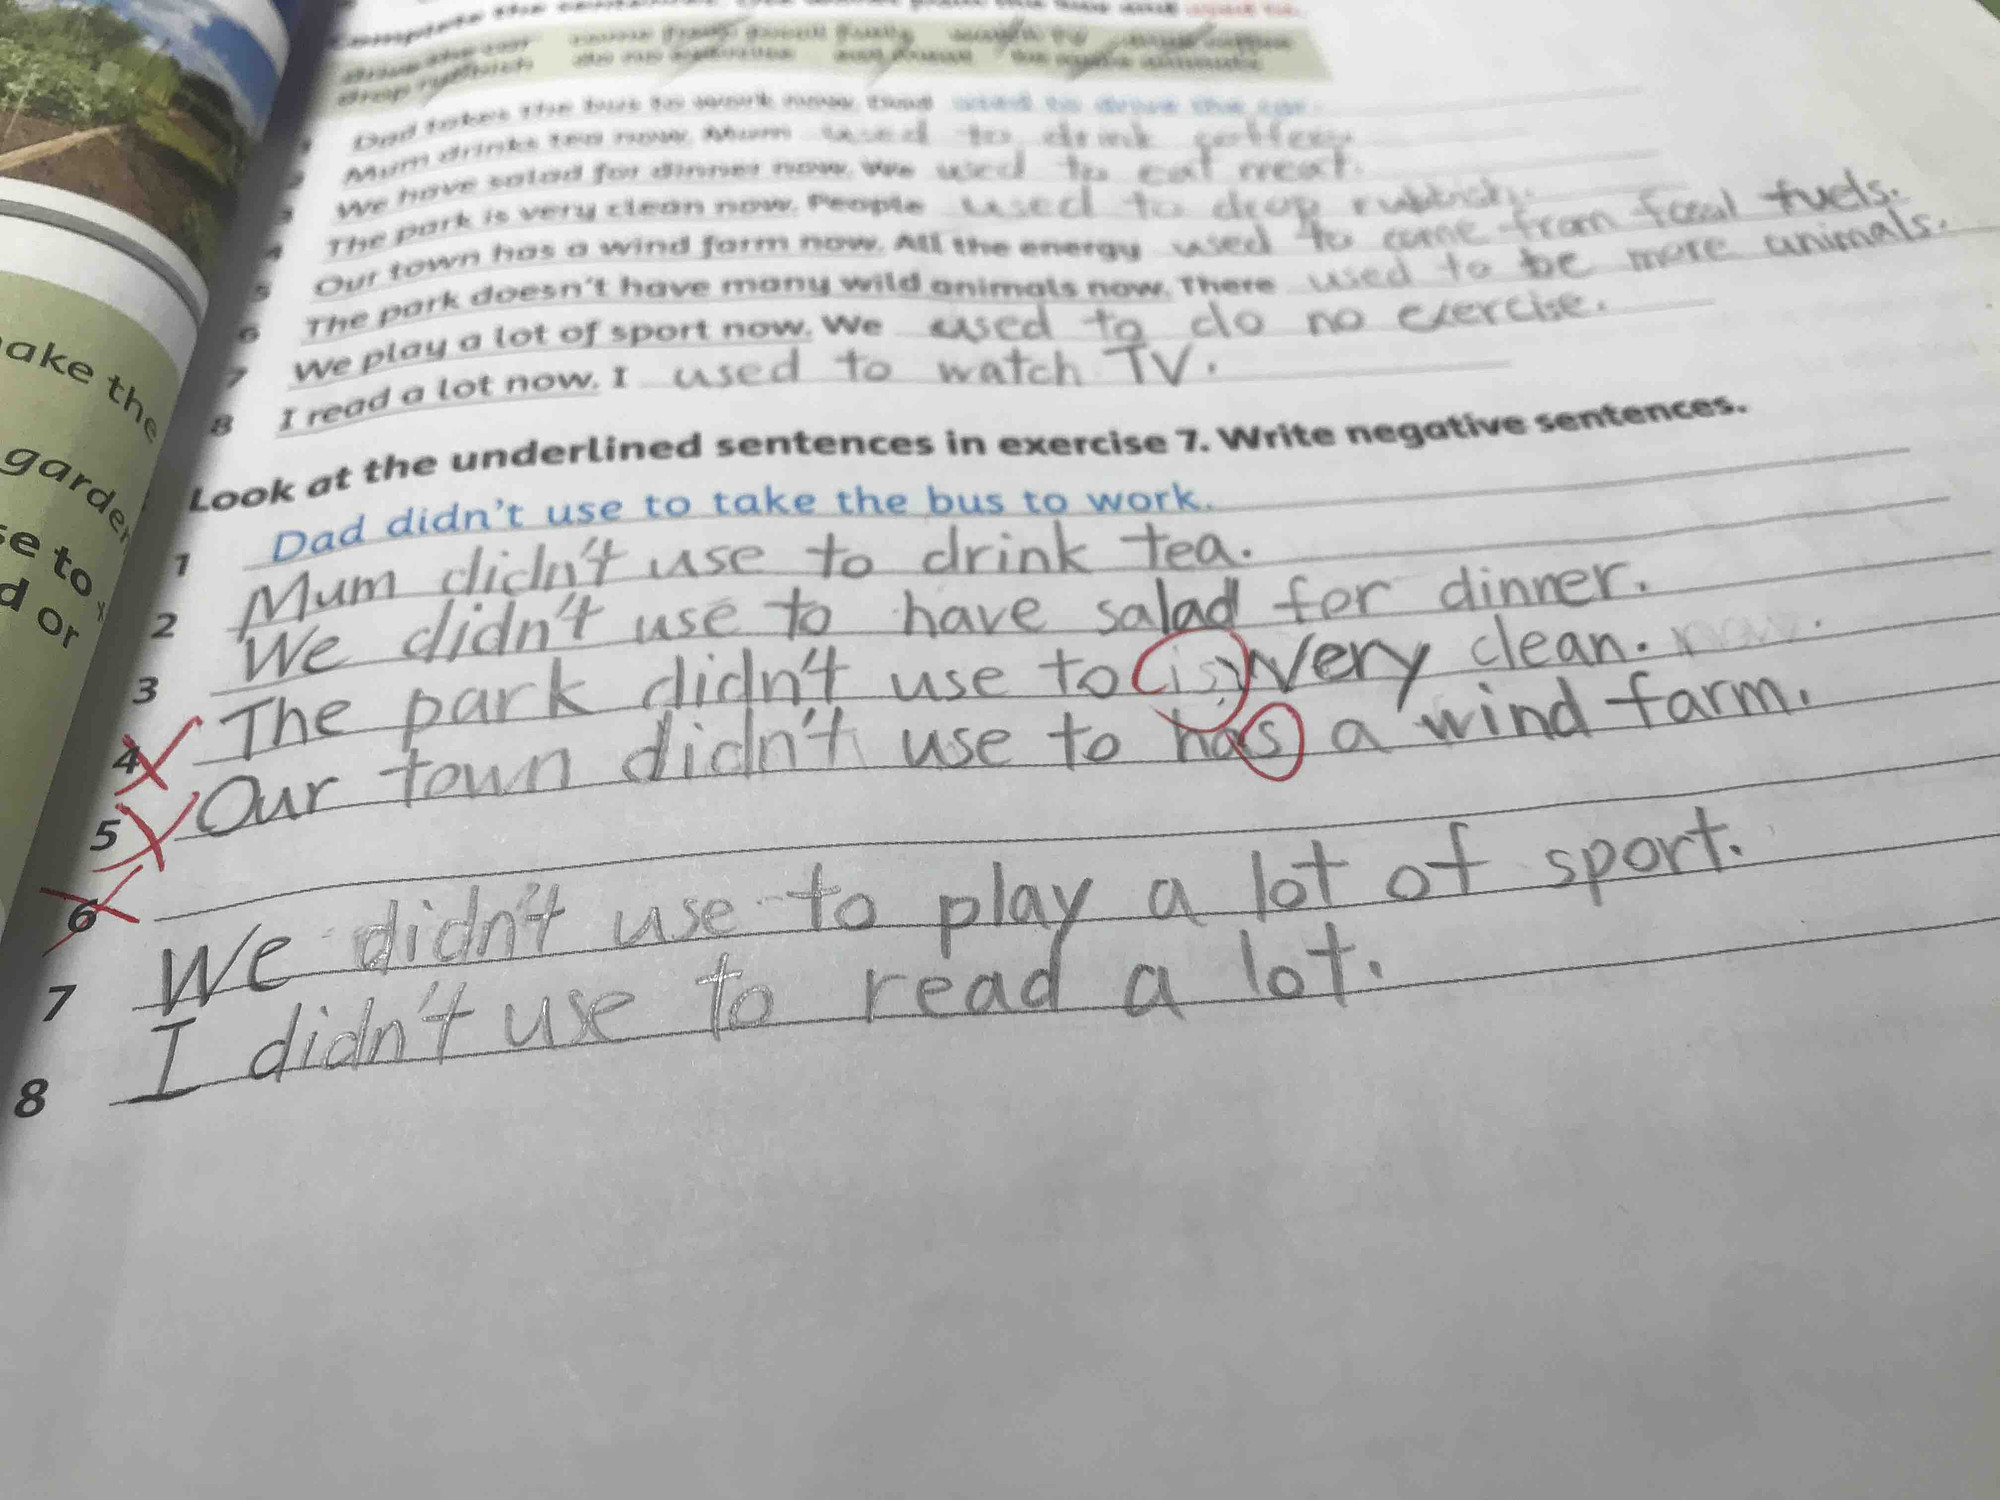 drop rubbish
Dad takes the bus to work now. Dad used to drive the car.
Mum drinks tea now. Mum used to drink coffee.
3 We have salad for dinner now. We used to eat meat.
4 The park is very clean now. People used to drop rubbish.
5 Our town has a wind farm now. All the energy used to come from fossil fuels.
6 The park doesn't have many wild animals now. There used to be more animals.
7 We play a lot of sport now. We used to do no exercise.
8 I read a lot now. I used to watch TV.
Look at the underlined sentences in exercise 7. Write negative sentences.
1 Dad didn't use to take the bus to work.
2 Mum didn't use to drink tea.
3 We didn't use to have salad for dinner.
4 The park didn't use to is very clean. now.
5 Our town didn't use to has a wind farm.
6
7 We didn't use to play a lot of sport.
8 I didn't use to read a lot.
ake the
garden
se to
d or